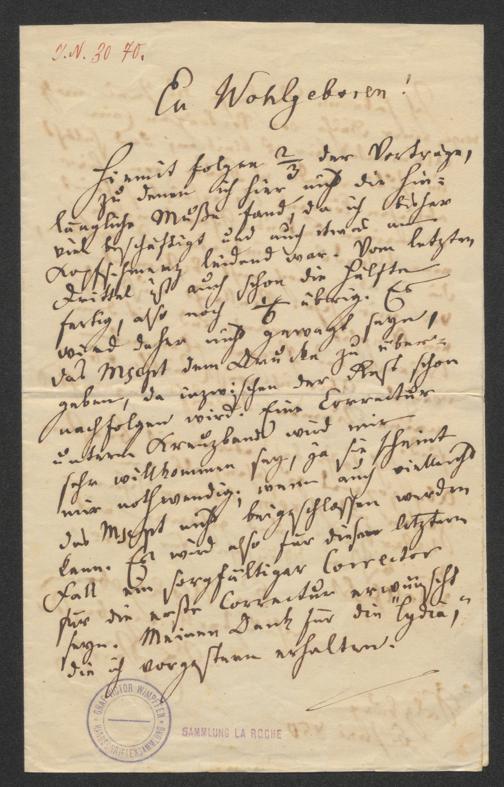 I.N. 30 70.
Eu Wohlgeboren!
Hiemit folgen 2/3 der Vorträge,
zu denen ich hier nicht die hin-
längliche Muße fand, da ich bisher
viel beschäftigt und auch etwas am
Kopfschmerz leidend war. Vom letzten
Drittel ist auch schon die Hälfte
fertig, also noch 1/6 übrig. Es
wird daher nicht gewagt seyn,
das Mscpt dem Drucke zu über-
geben, da inzwischen der Rest schon
nachfolgen wird. Eine Correctur
unterm Kreuzband wird mir
sehr willkommen sey, ja sie scheint
mir nothwendig; wenn auch vielleicht
das Mscpt nicht beigeschlossen werden
kann. Es wird also für diesen letztern
Fall ein sorgfältiger Corrector
für die erste Correctur erwünscht
seyn. Meinen Dank für die "Lydia,"
die ich vorgestern erhalten.
GRAF VICTOR WIMPFFEN
SAMMLUNG LA ROCHE